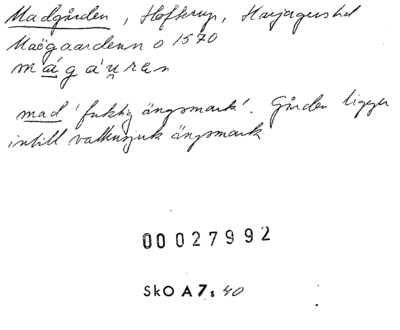 Madgården, Hofterup, Harjagers hd
Maegaarden o 1570
mágáu̯rən
mad 'fuktig ängsmark'. Gården ligger
intill vattensjuk ängsmark
00027992
SkO A7: 40